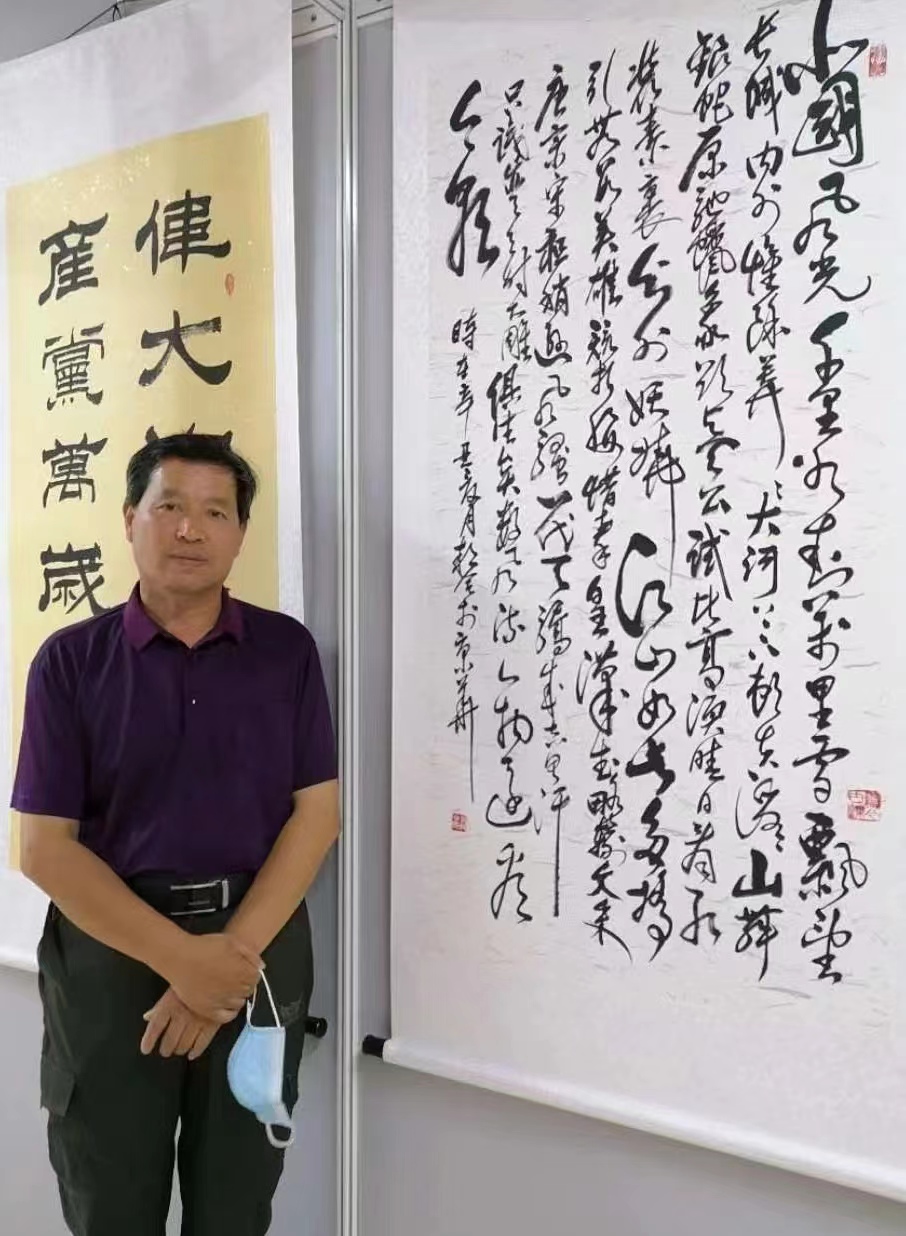 北國風光千里冰封萬里雪飄望
長城內外惟餘莽莽大河上下頓失滔滔山舞
銀蛇原馳蠟象欲與天公試比高須晴日看紅
裝素裹分外妖嬈江山如此多嬌
引無數英雄競折腰惜秦皇漢武略輸文采
唐宗宋祖稍遜風騷一代天驕成吉思汗
只識彎弓射大雕俱往矣數風流人物還看
今朝
時在辛丑夏月於京華
偉大
產黨萬歲